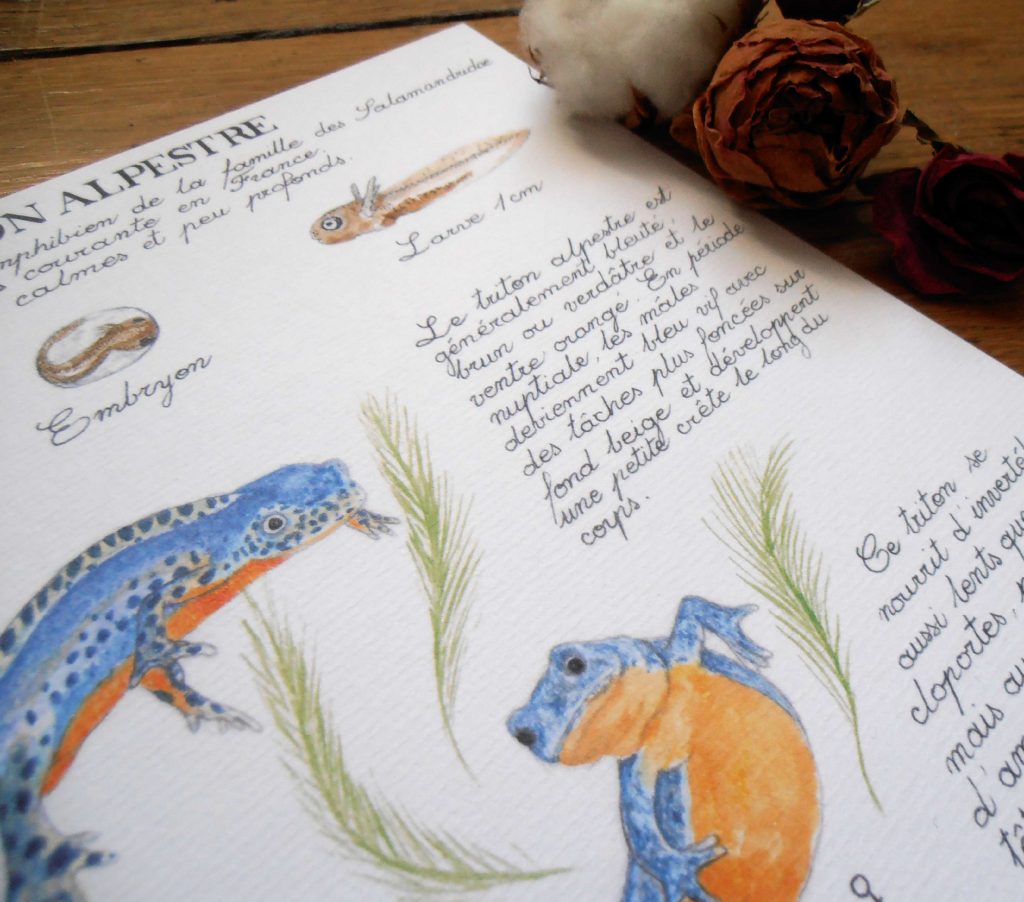 ON ALPESTRE
amphibien de la famille des Salamandridae
courante en France.
calmes et peu profonds.
Larve 1cm
Embryon
Le triton alpestre est
généralement bleuté,
brun ou verdâtre et le
ventre orangé. En période
nuptiale, les mâles
deviennent bleu vif avec
des tâches plus foncées sur
fond beige et développent
une petite crête le long du
corps.
Ce triton se
nourrit d'inverté
aussi lents que
cloportes,
mais au
d'am
têt
♀